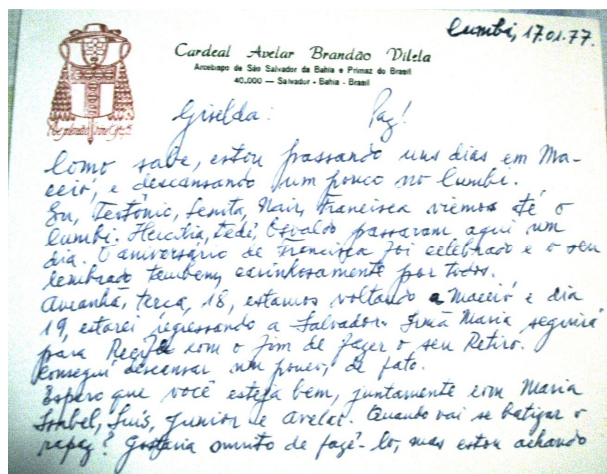 Cumbi, 17.01.77.
Cardeal Avelar Brandão Vilela
Arcebispo de São Salvador da Bahia e Primaz do Brasil
40.000 — Salvador - Bahia - Brasil
Giselda: Paz!
Como sabe, estou passando uns dias em Ma-
ceió, e descansando um pouco no Cumbi.
Eu, Teotônio, Lenita, Nair, Francisca viemos até o
Cumbi. Hercília, Dedé, Osvaldo passaram aqui um
dia. O aniversário de Francisca foi celebrado e o seu
lembrado também, carinhosamente por todos.
Amanhã, terça, 18, estamos voltando a Maceió e dia
19, estarei regressando a Salvador. Irmã Maria seguirá
para Recife com o fim de fazer o seu Retiro.
Consegui descansar um pouco, de fato.
Espero que você esteja bem, juntamente com Maria
Isabel, Luís, Junior e Avelar. Quando vai se batizar o
rapaz? Gostaria muito de fazê-lo, mas estou achando